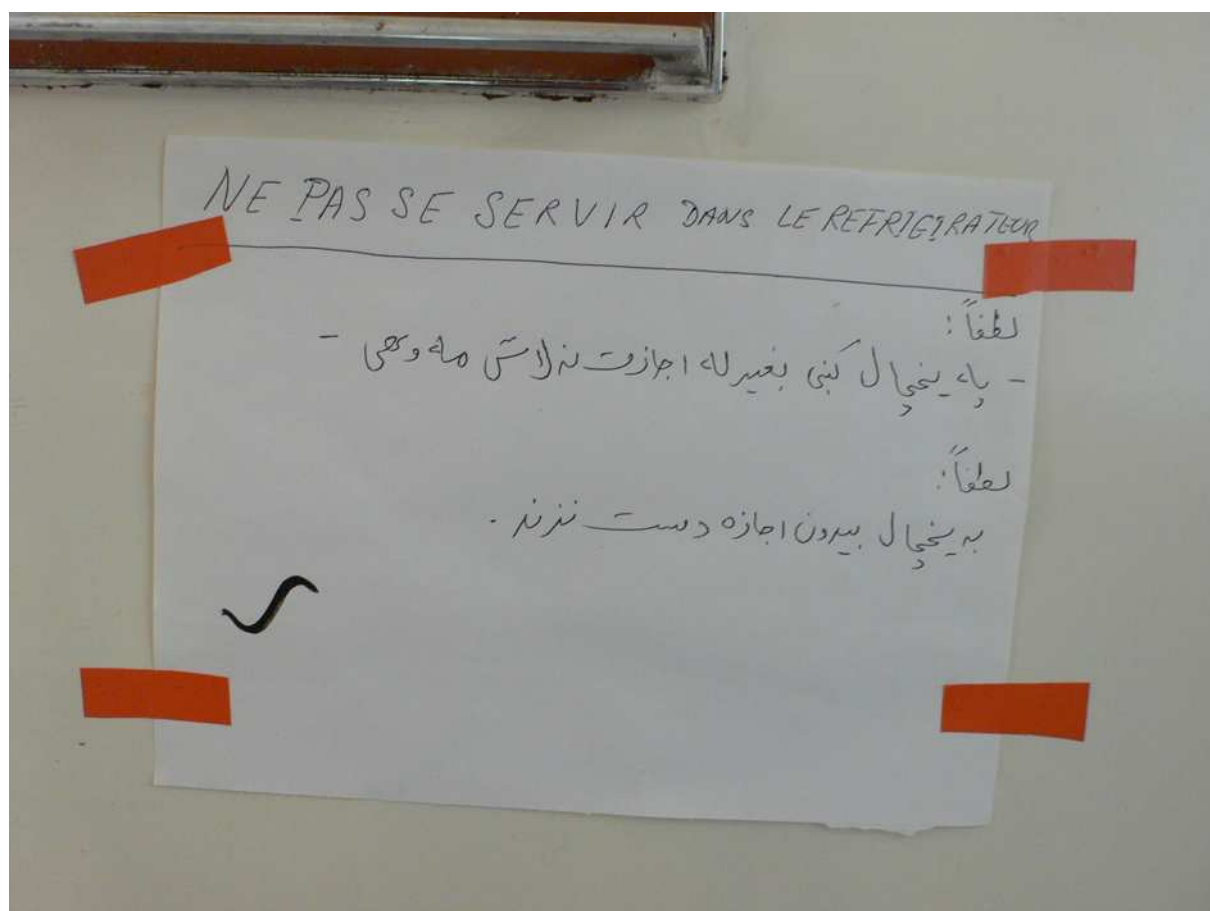 NE PAS SE SERVIR DANS LE REFRIGIRATEUR
لطفاً:
- په یخچال کښی بغیر له اجازت نه لاس مه وهی -
لطفاً:
به یخچال بیدون اجازه دست نزنند.